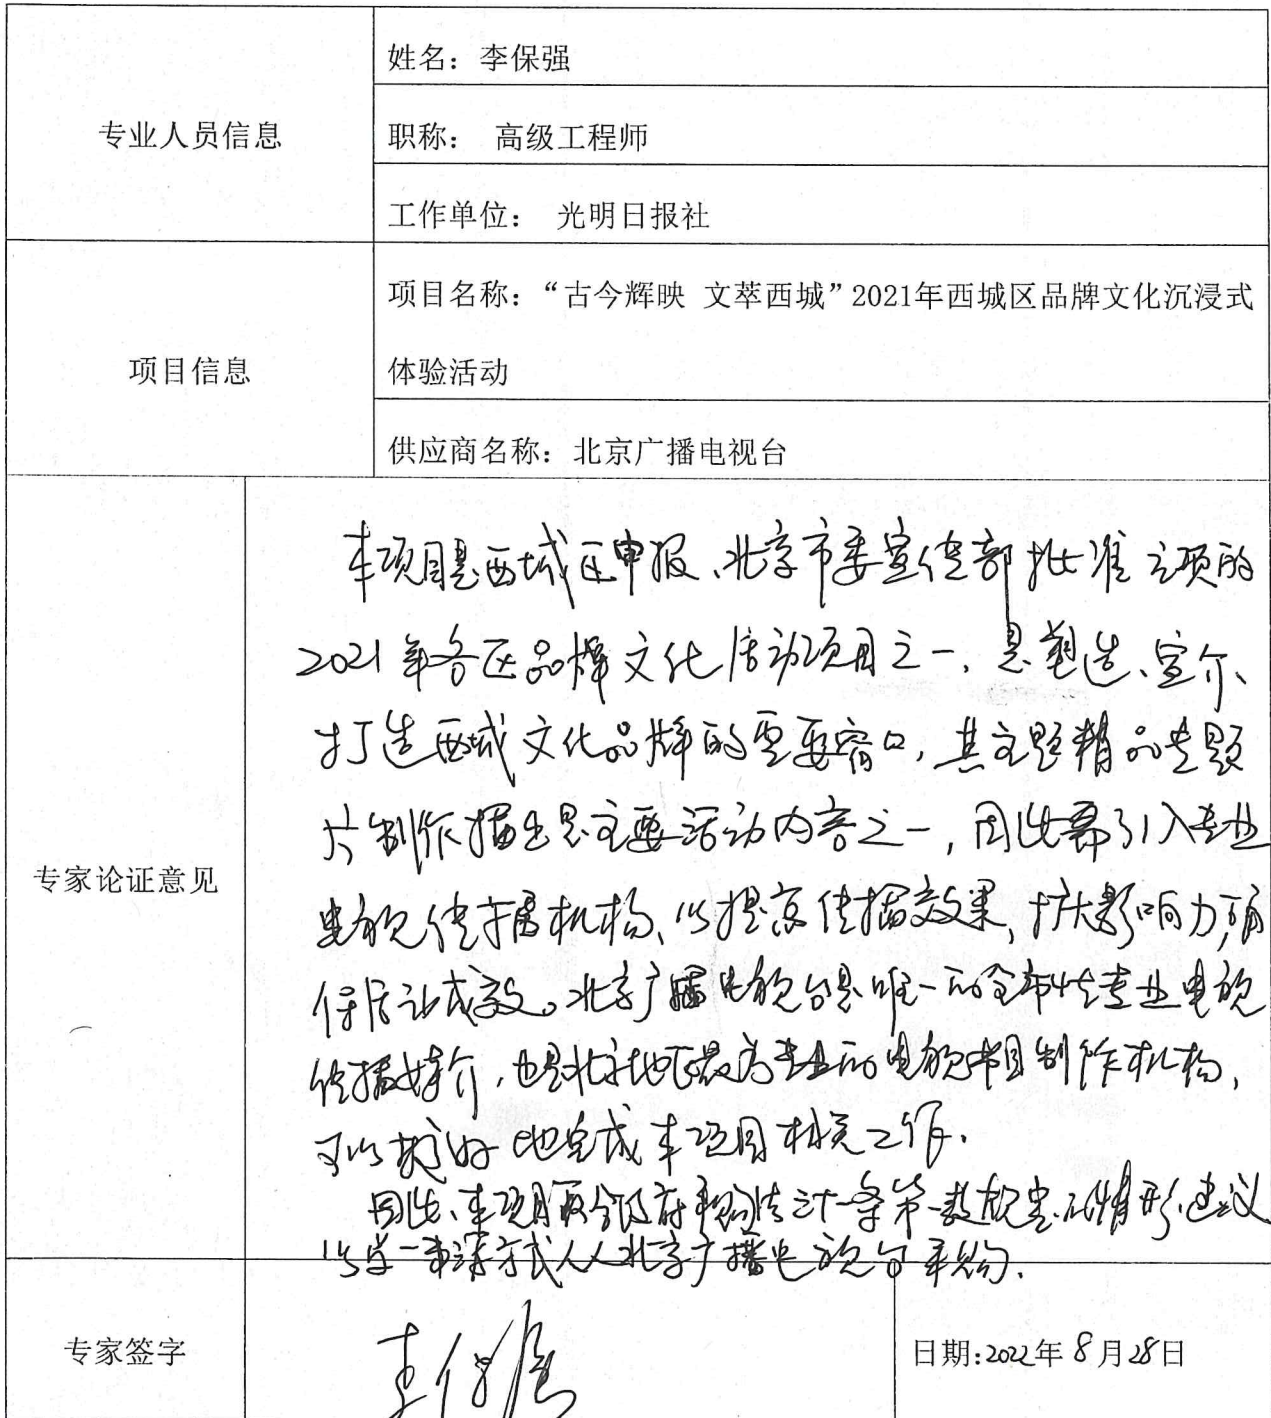 姓名：李保强
专业人员信息
职称： 高级工程师
工作单位： 光明日报社
项目名称：“古今辉映 文萃西城”2021年西城区品牌文化沉浸式
项目信息
体验活动
供应商名称：北京广播电视台
专家论证意见
本项目是西城区申报、北京市委宣传部批准立项的
2021年各区品牌文化活动项目之一，是塑造、宣介、
打造西城文化品牌的重要窗口，其主题精品专题
片制作播出是主要活动内容之一，因此需引入专业
电视传播机构，以提高传播效果，扩大影响力，确
保活动成效。北京广播电视台是唯一的全市性专业电视
传播媒介，也是北京地区最为专业的电视节目制作机构，
可以更好地完成本项目相关工作。
因此、本项目符合政府采购法三十一条第一款规定的情形，建议
以单一来源方式从北京广播电视台采购。
专家签字
李保强
日期:2022年8月28日